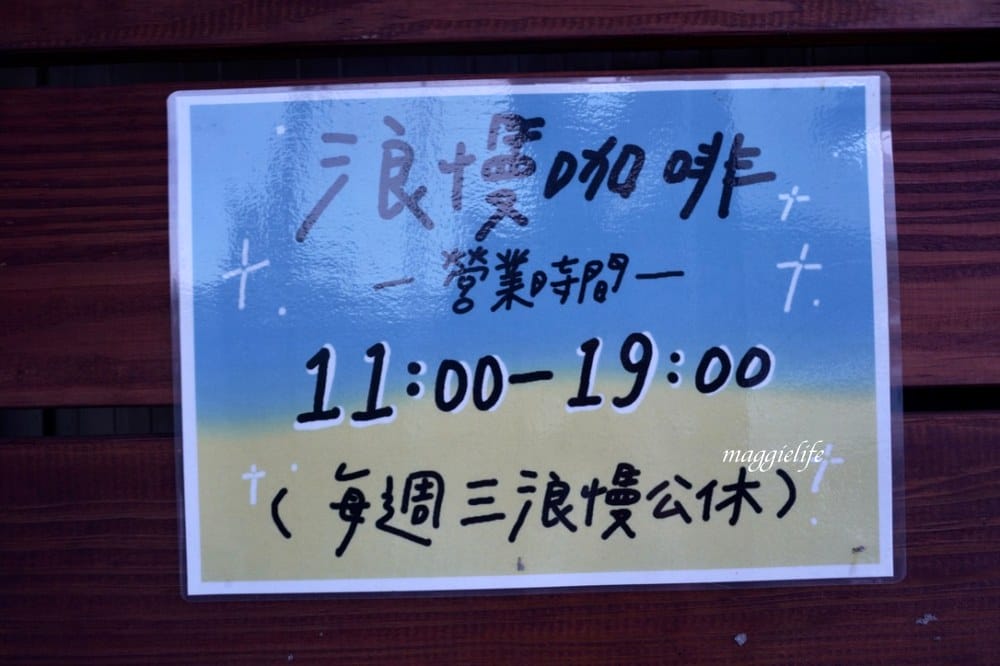 浪慢咖啡
— 營業時間 —
11:00 - 19:00
maggielife
( 每週三浪慢公休 )